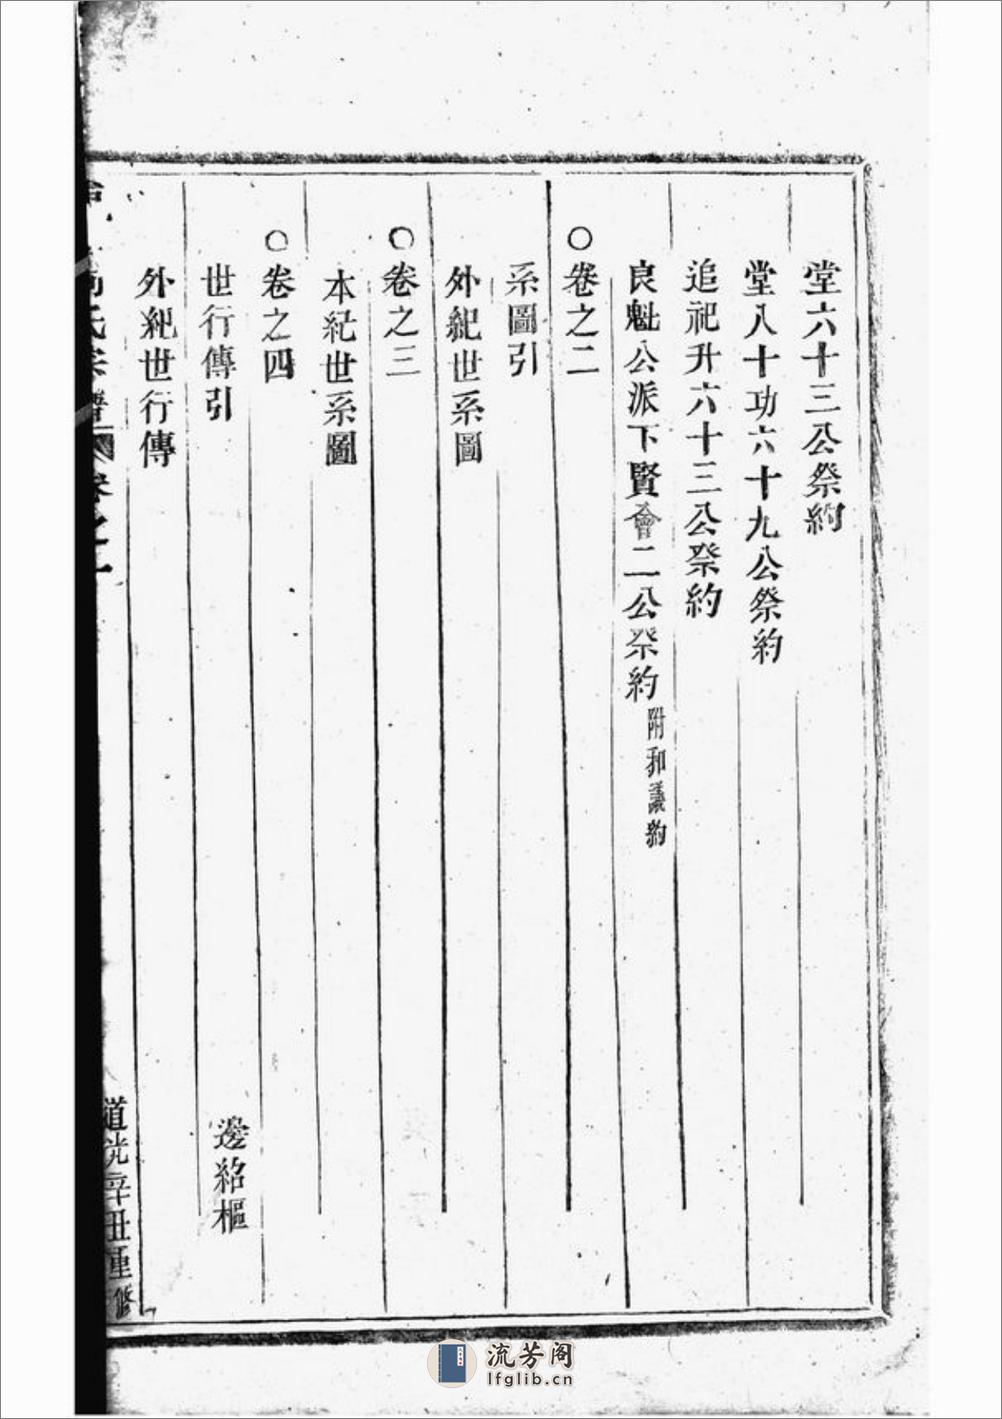 堂六十三公祭約
堂八十功六十九公祭約
追祀升六十三公祭約
良魁公派下賢會二公祭約 附和議約
○卷之二
系圖引
外紀世系圖
○卷之三
本紀世系圖
○卷之四
世行傳引 邊紹樞
外紀世行傳
氏宗譜 卷之一 道光辛丑重修
流芳阁
lfglib.cn